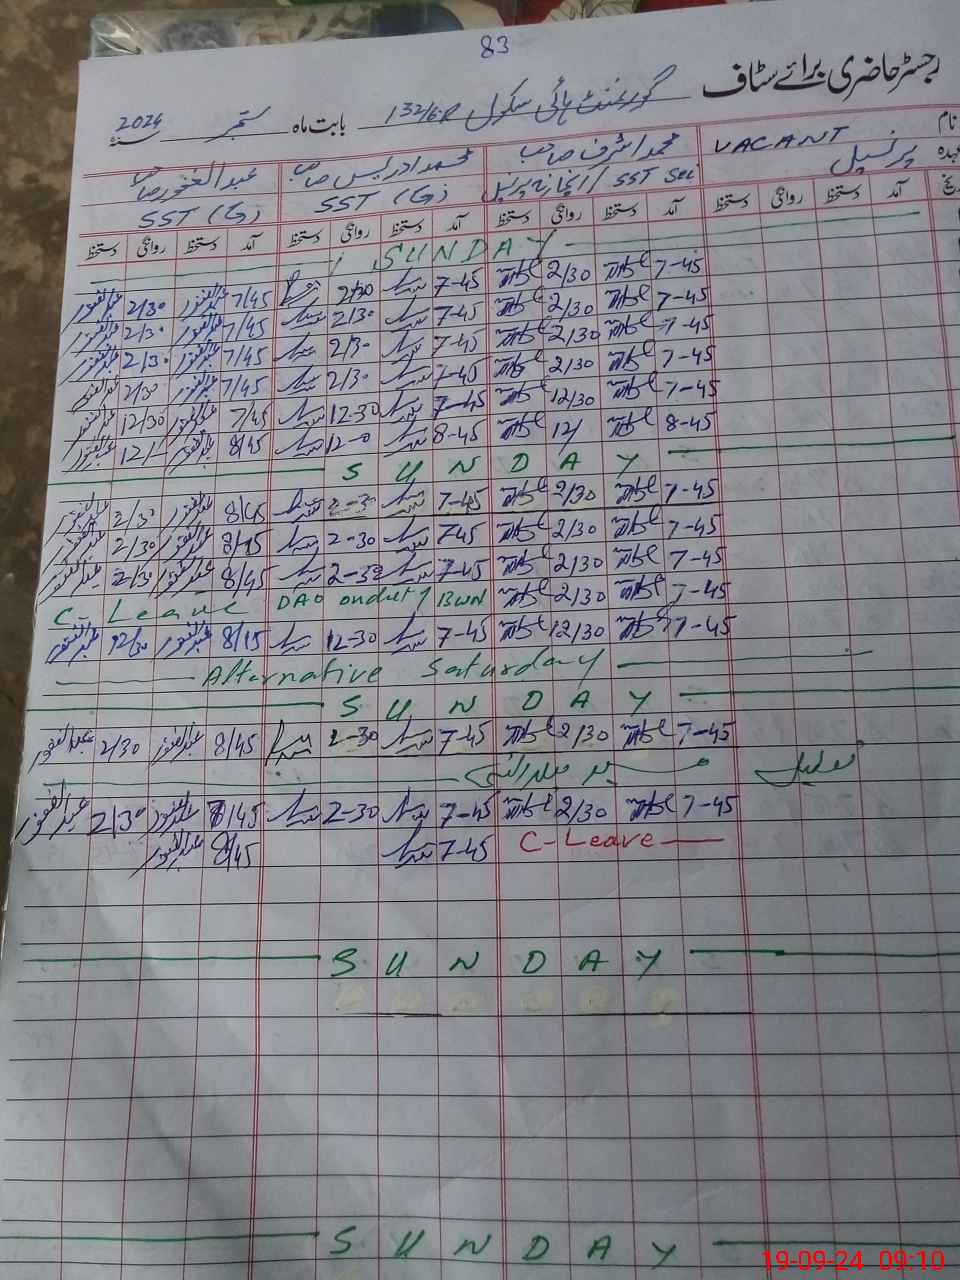 83
رجسٹر حاضری برائے سٹاف
گورنمنٹ ہائی سکول 132/6R بابت ماہ ستمبر 2024
نام VACANT محمد اشرف صاحب محمد ادریس صاحب عبدالغفور صاحب
عہدہ پرنسپل انچارج پرنسپل / SST Sci SST (G) SST (G)
آمد دستخط روانگی دستخط آمد دستخط روانگی دستخط آمد دستخط روانگی دستخط آمد دستخط روانگی دستخط
SUNDAY
7-45 2/30 7-45 2/30 7/45 عبدالغفور 2/30 عبدالغفور
7-45 2/30 7-45 2/30 7/45 عبدالغفور 2/30 عبدالغفور
7-45 2/30 7-45 2/30 7/45 عبدالغفور 2/30 عبدالغفور
7-45 2/30 7-45 2/30 7/45 عبدالغفور 2/30 عبدالغفور
7-45 12/30 7-45 12-30 7/45 عبدالغفور 12/30 عبدالغفور
8-45 12/ 8-45 12-0 8/45 عبدالغفور 12/- عبدالغفور
SUNDAY
7-45 2/30 7-45 2-30 8/45 عبدالغفور 2/30 عبدالغفور
7-45 2/30 7-45 2-30 8/15 عبدالغفور 2/30 عبدالغفور
7-45 2/30 7-45 2-30 8/45 عبدالغفور 2/30 عبدالغفور
7-45 2/30 DAO on duty BWN C-Leave
7-45 12/30 7-45 12-30 8/15 عبدالغفور 12/30 عبدالغفور
Alternative Saturday
SUNDAY
7-45 2/30 7-45 2-30 8/45 عبدالغفور 2/30 عبدالغفور
تعطیل عید میلاد النبی
7-45 2/30 7-45 2-30 7/45 عبدالغفور 2/30 عبدالغفور
C-Leave 7-45 8/45 عبدالغفور
SUNDAY
SUNDAY
19-09-24 09:10